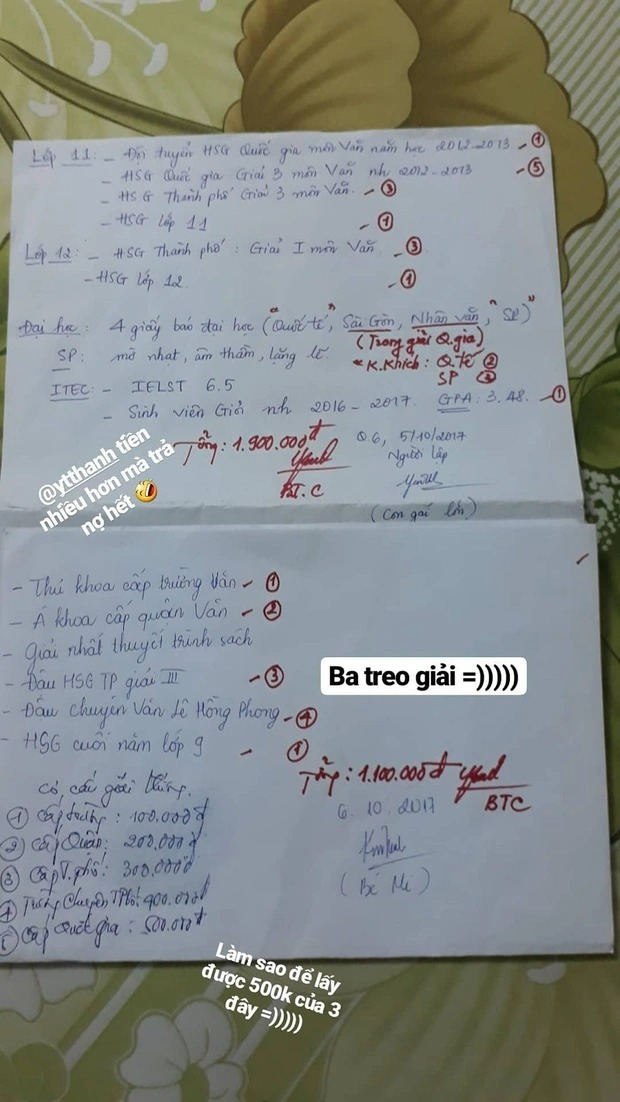 Lớp 11: - Đội tuyển HSG Quốc gia môn Văn năm học 2012-2013 - 1
- HSG Quốc gia Giải 3 môn Văn nh 2012-2013 - 5
- HSG Thành phố Giải 3 môn Văn. - 3
- HSG lớp 11 - 1
Lớp 12: - HSG Thành phố: Giải I môn Văn - 3
- HSG lớp 12 - 1
Đại học: 4 giấy báo đại học ("Quốc tế", Sài Gòn, Nhân văn, "SP")
(Trong giải Q.gia)
SP: mờ nhạt, âm thầm, lặng lẽ
* K.Khích: Q.Tế 2
SP 2
ITEC: - IELST 6.5
- Sinh viên Giỏi nh 2016-2017. GPA: 3.48. - 1
@ytthanh tiền
nhiều hơn mà trả
nợ hết 🤣
Tổng: 1.900.000đ
BT.C
Q6, 5/10/2017
Người lập
(Con gái lớn)
- Thủ khoa cấp trường Văn - 1
- Á khoa cấp quận Văn - 2
- Giải nhất thuyết trình sách
- Đậu HSG TP giải III - 3
- Đậu chuyên Văn Lê Hồng Phong - 4
- HSG cuối năm lớp 9 - 1
Ba treo giải =)))))
Tổng: 1.100.000đ
BTC
6.10.2017
(Bé Mi)
Cơ cấu giải thưởng.
1 Cấp trường: 100.000đ
2 Cấp Quận: 200.000đ
3 Cấp T.phố: 300.000đ
4 Trường chuyên TPhố: 400.000đ
5 Cấp Quốc gia: 500.000đ
Làm sao để lấy
được 500k của 3
đây =)))))